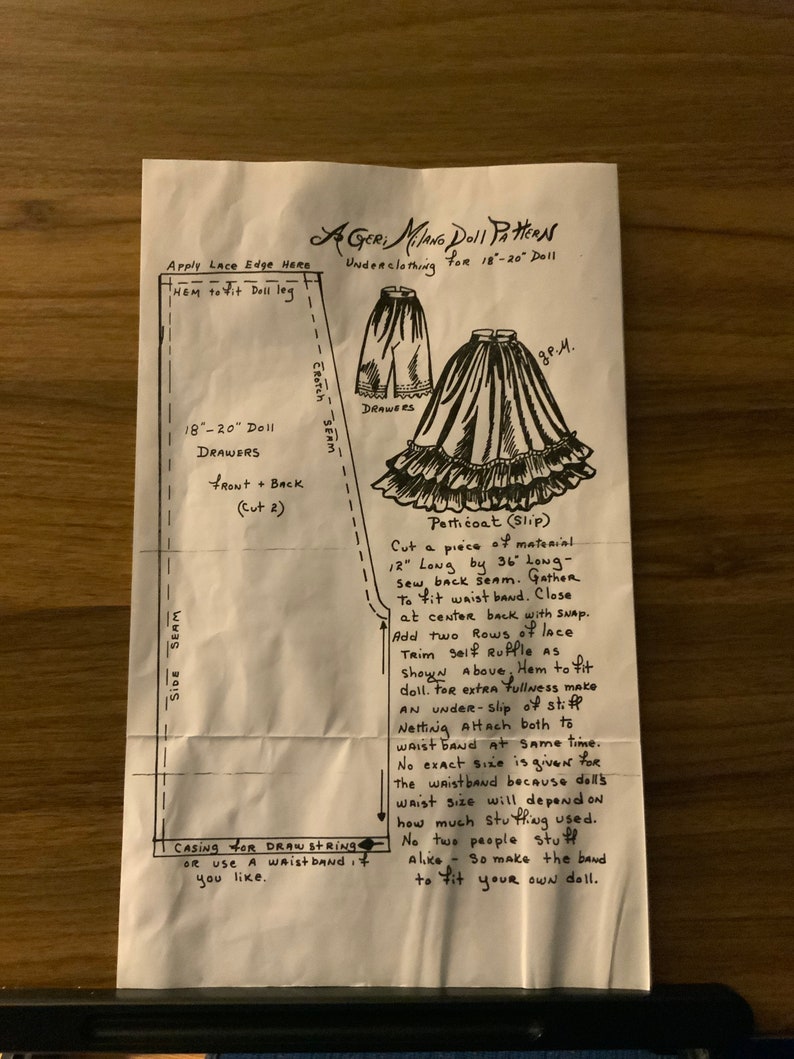 A Geri Milano Doll Pattern
Underclothing for 18"-20" Doll
Apply Lace Edge HERE
HEM to fit Doll leg
CROTCH SEAM
18"-20" Doll
DRAWERS
FRONT + BACK
(Cut 2)
SIDE SEAM
CASING FOR DRAWSTRING
OR USE A WAISTBAND if
you like.
DRAWERS
g.P.M.
Petticoat (Slip)
Cut a piece of material
12" Long by 36" Long-
sew back seam. Gather
to fit waistband. Close
at center back with snap.
Add two Rows of lace
Trim Self Ruffle as
shown above. Hem to fit
doll. For extra fullness make
an under-slip of stiff
Netting Attach both to
waistband at same time.
No exact size is given for
the waistband because doll's
waist size will depend on
how much stuffing used.
No two people stuff
Alike - So make the band
to fit your own doll.